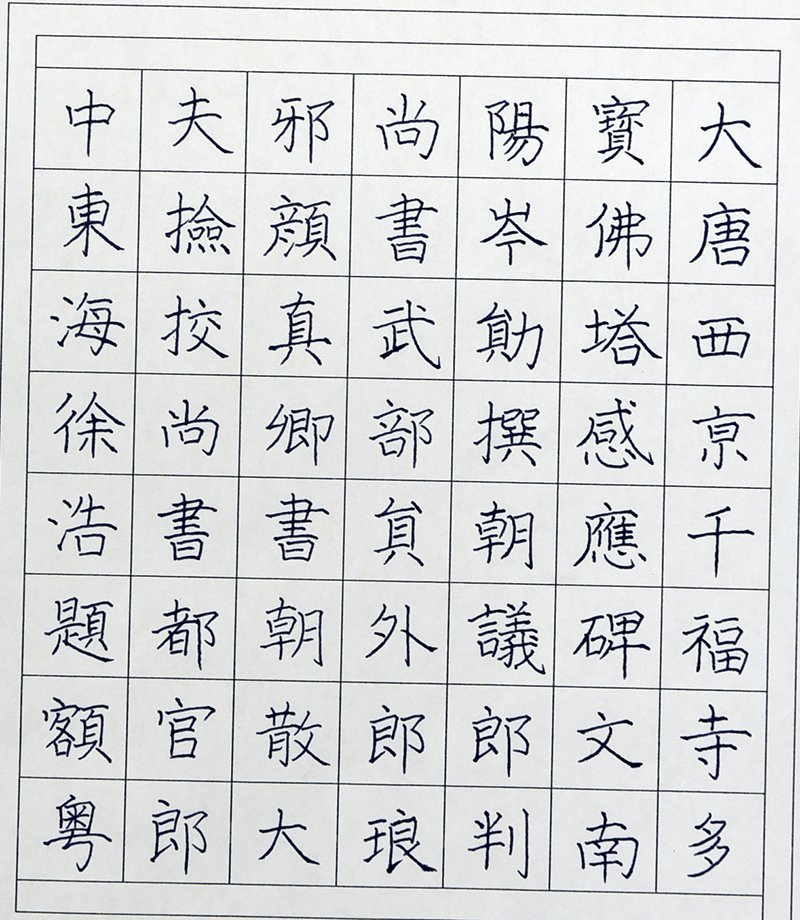 大唐西京千福寺多
寶佛塔感應碑文南
陽岑勛撰朝議郎判
尚書武部員外郎琅
邪顏真卿書朝散大
夫撿挍尚書都官郎
中東海徐浩題額粵